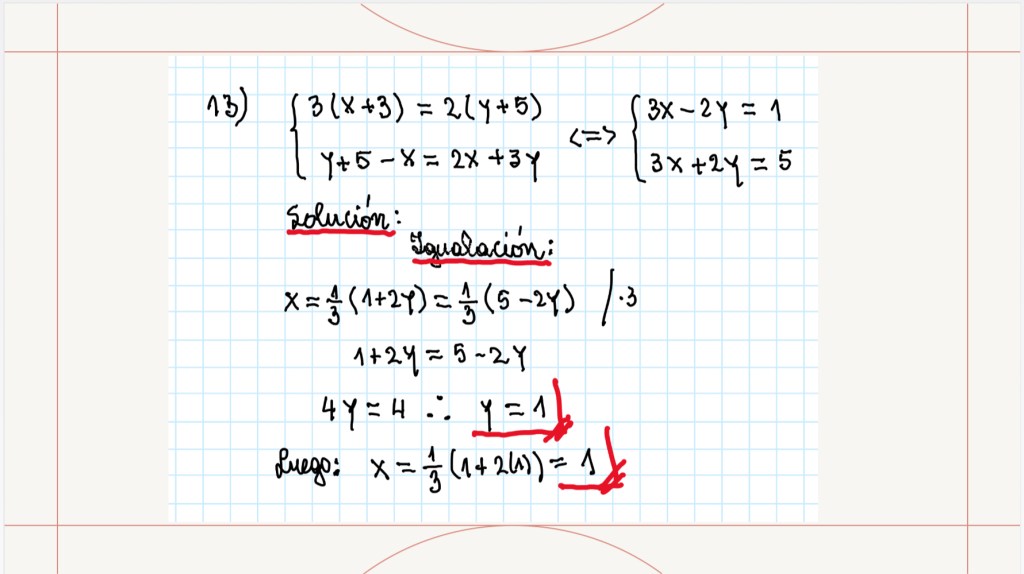 13) { 3(x+3) = 2(y+5) <=> { 3x-2y = 1
y+5-x = 2x+3y 3x+2y = 5
Solución:
Igualación:
x = 1/3 (1+2y) = 1/3 (5-2y) / ·3
1+2y = 5-2y
4y = 4 ∴ y = 1
Luego: x = 1/3 (1+2(1)) = 1